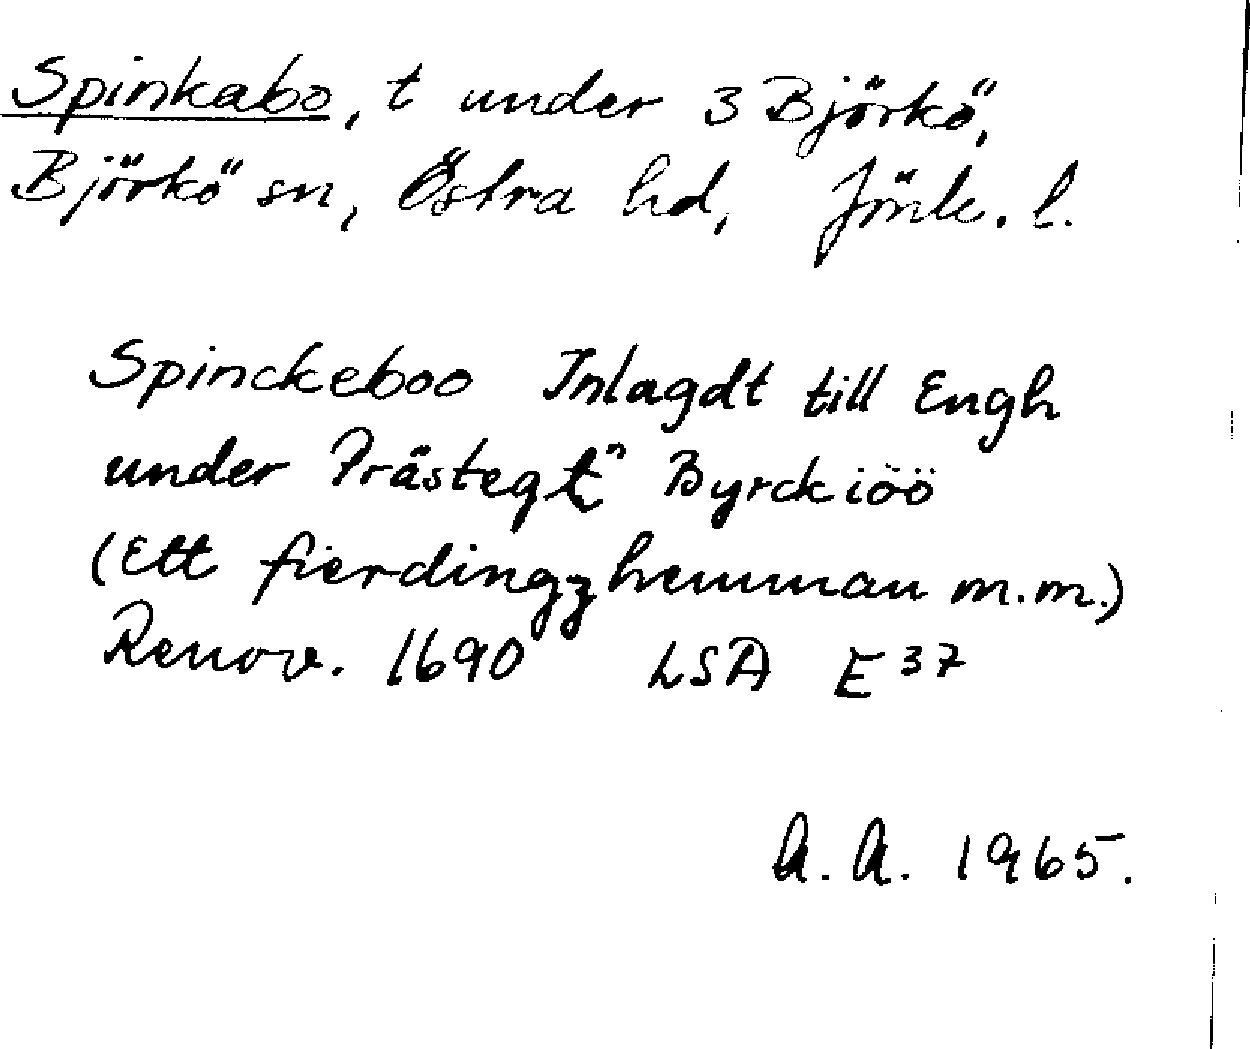 Spinkabo, t under 3 Björkö,
Björkö sn, Östra hd, Jönk. l.
Spinckeboo Inlagdt till Engh
under Prästegt" Byrckiöö
(Ett fierdingzhemman m.m.)
Renov. 1690 LSA E 37
A. A. 1965.